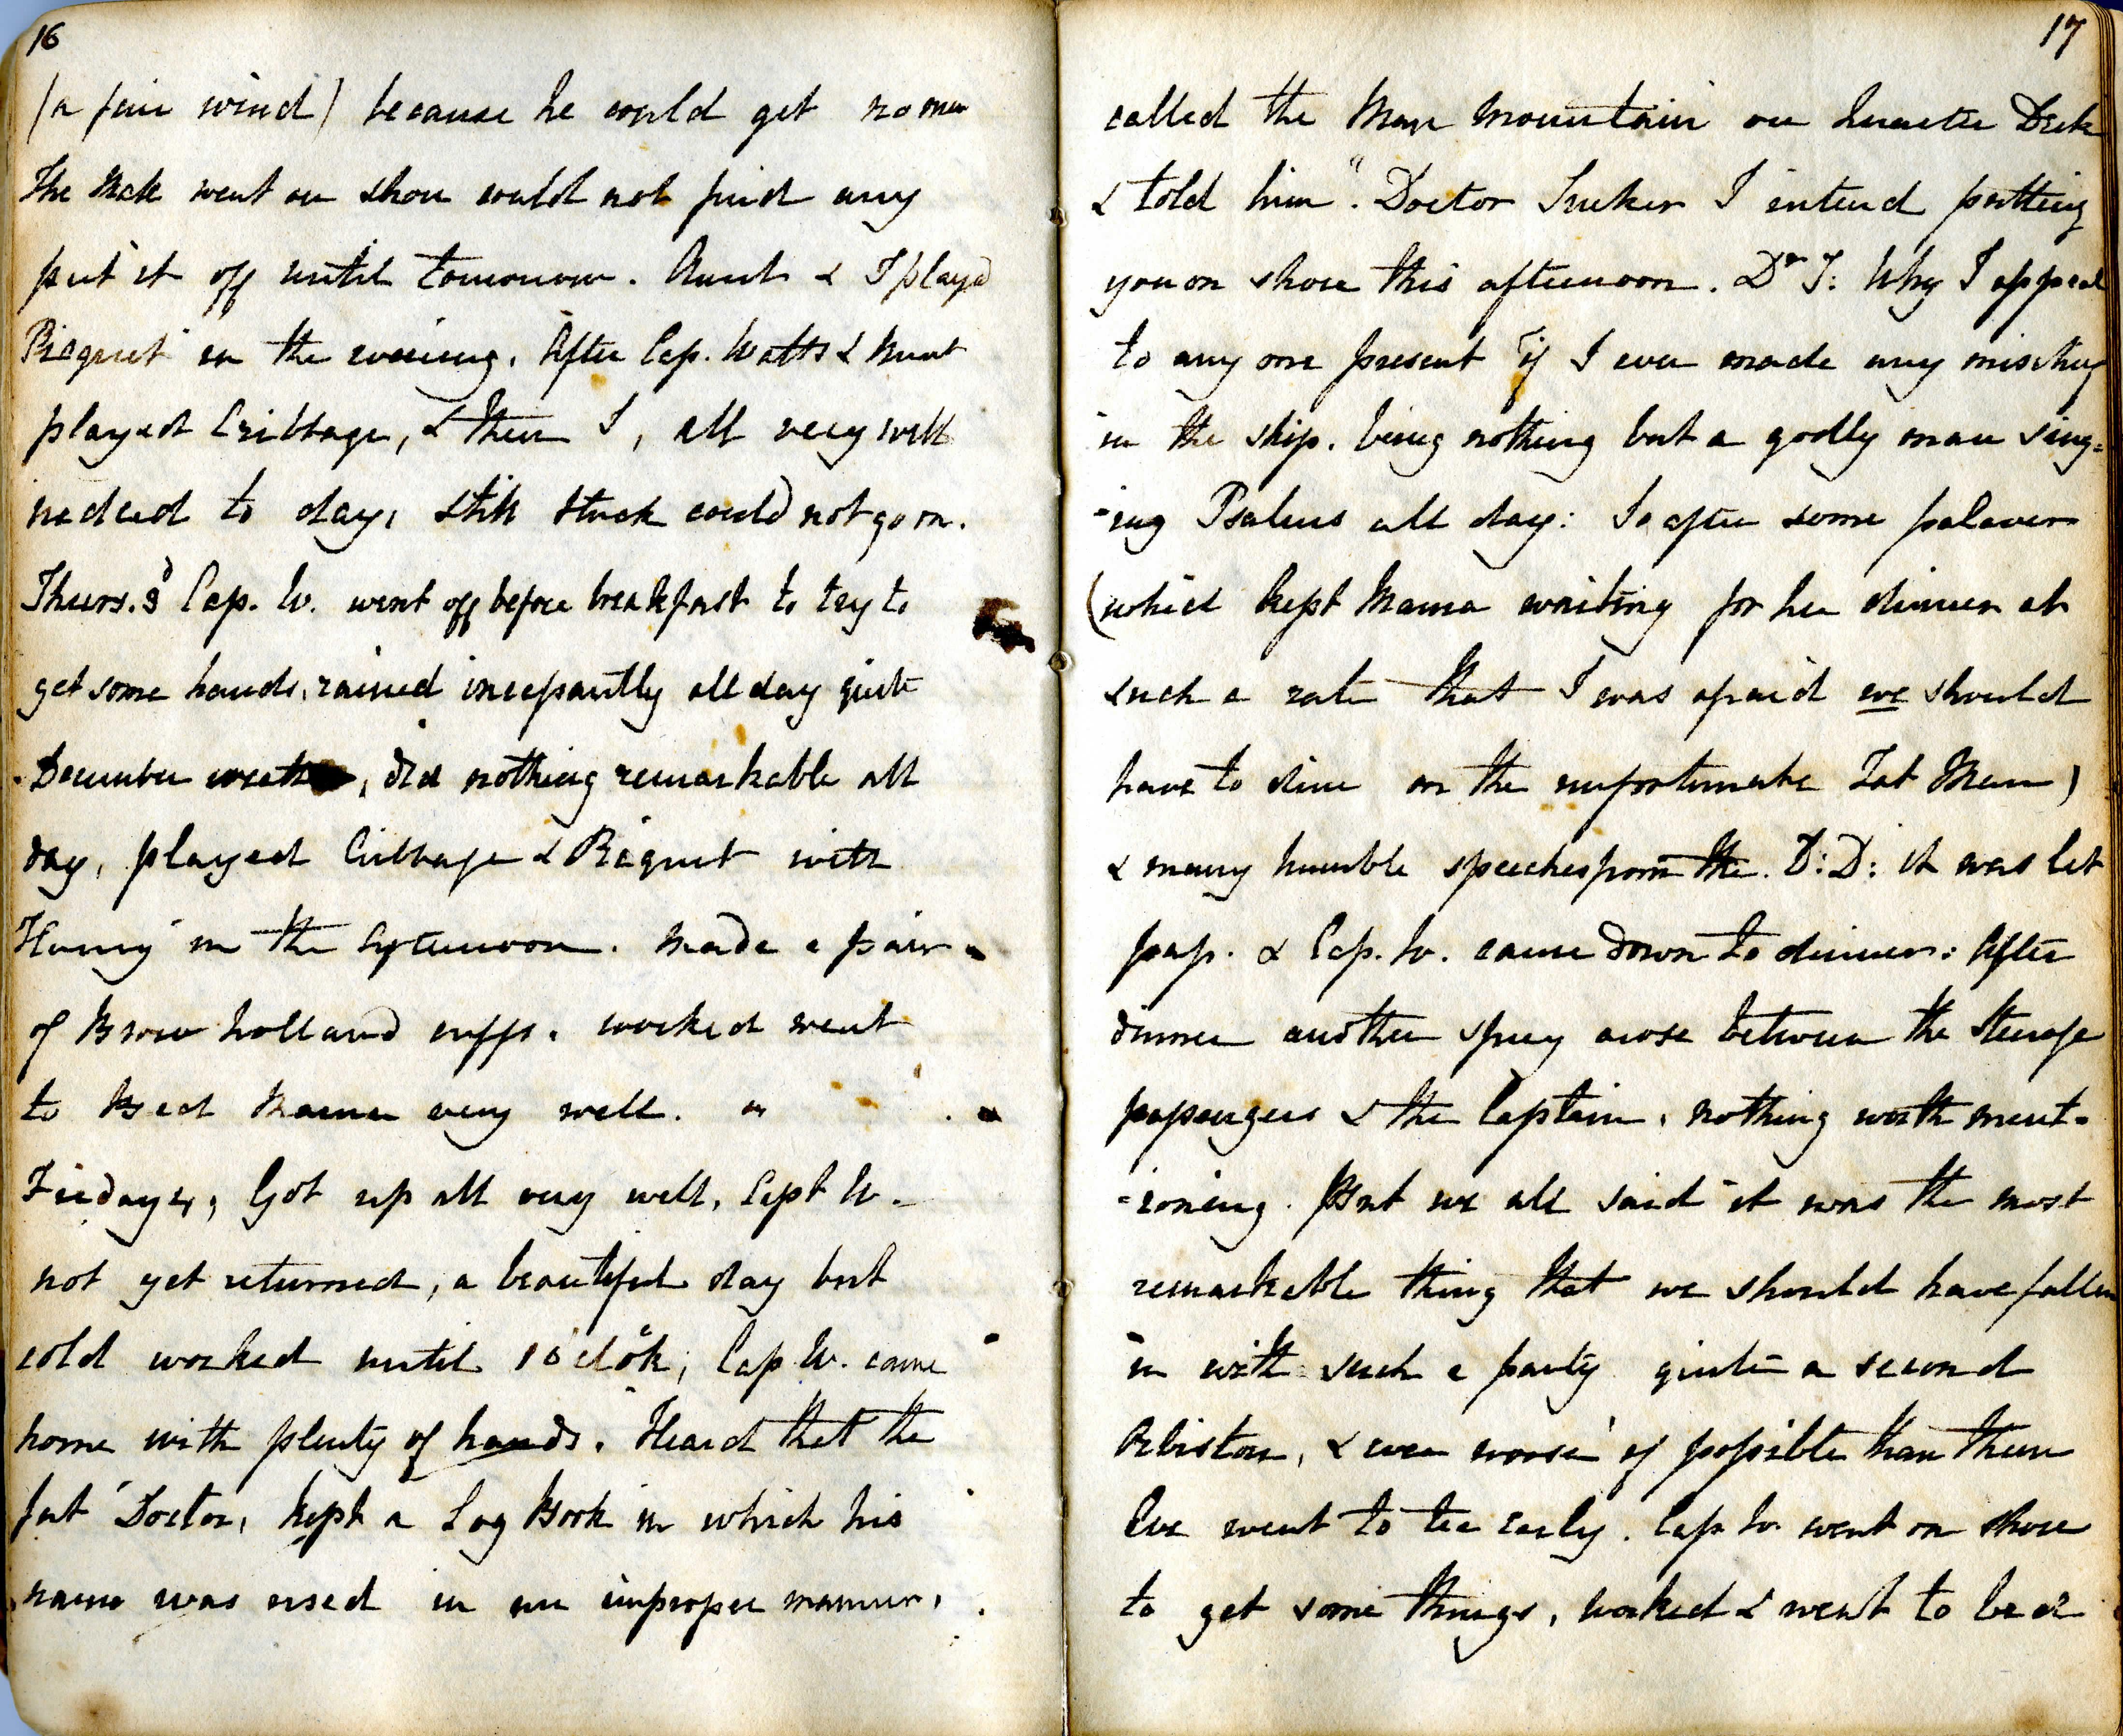 16
(a fair wind) because he could get no men
The Mate went on shore could not find any
put it off until tomorrow. Aunt & I playd
Picquet in the evening. After Cap. Watts & Aunt
played Cribbage, & then I, all very well
indeed to day, still stuck could not go on.
Thurs. 3d Cap. W. went off before breakfast to try to
get some hands, rained incessantly all day quite
December weather, did nothing remarkable all
day, played Cribbage & Picquet with
Henry in the Afternoon. Made a pair
of Brown holland cuffs. worked went
to Bed Mama very well.
Friday 4, Got up all very well, Capt W.
not yet returned, a beautiful day but
cold worked until 1 o'clok, Cap W. came
home with plenty of hands. Heard that the
fat Doctor, kept a Log Book in which his
name was used in an improper manner,
17
called the Man Mountain on Quarter Deck
& told him "Doctor Tucker I intend putting
you on shore this afternoon. Dr T: Why I appeal
to any one present if I ever made any mischief
in the ship. being nothing but a godly man sing=
=ing Psalms all day: So after some palaver
(which kept Mama waiting for her dinner at
such a rate that I was afraid we should
have to dine on the unfortunate Fat Man)
& many humble speeches from the D:D: it was let
pass. & Cap. W. came down to dinner: After
dinner another spree arose between the Steerage
passengers & the Captain, nothing worth ment=
=ioning. But we all said it was the most
remarkable thing that we should have fallen
in with such a party quite a second
Orbiston, & even worse if possible than them
We went to tea early. Cap W. went on shore
to get some things, worked & went to bed